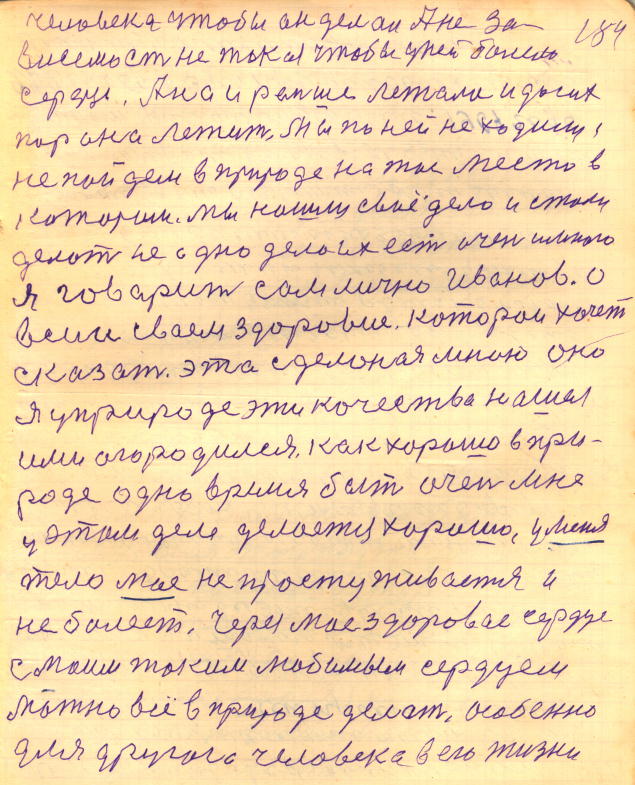 человека чтобы он делал А не за- 184
висемост не такая чтобы у ней болело
сердце. Ана и раньше летала и до сих
пор она летит. Мы по ней не ходили,
не пойдем в природе на тае место в
котором. Мы нашли своё дело и стали
делат не одно дело их ест очен много
я говарит сам лично Иванов. о
всем своем здоровие. которои хочет
сказат. эта сделоная мною оно
я у природе эти кочества нашел
ими огородился. как хорошо в при-
роде одно время быт очен мне
у этом деле делается хорошо, у меня
тело мое не простуживается и
не болеет. через мое здоровае сердце
с моим таким любимым сердцем
можно всё в природе делат. особенно
для другога человека в его жизни